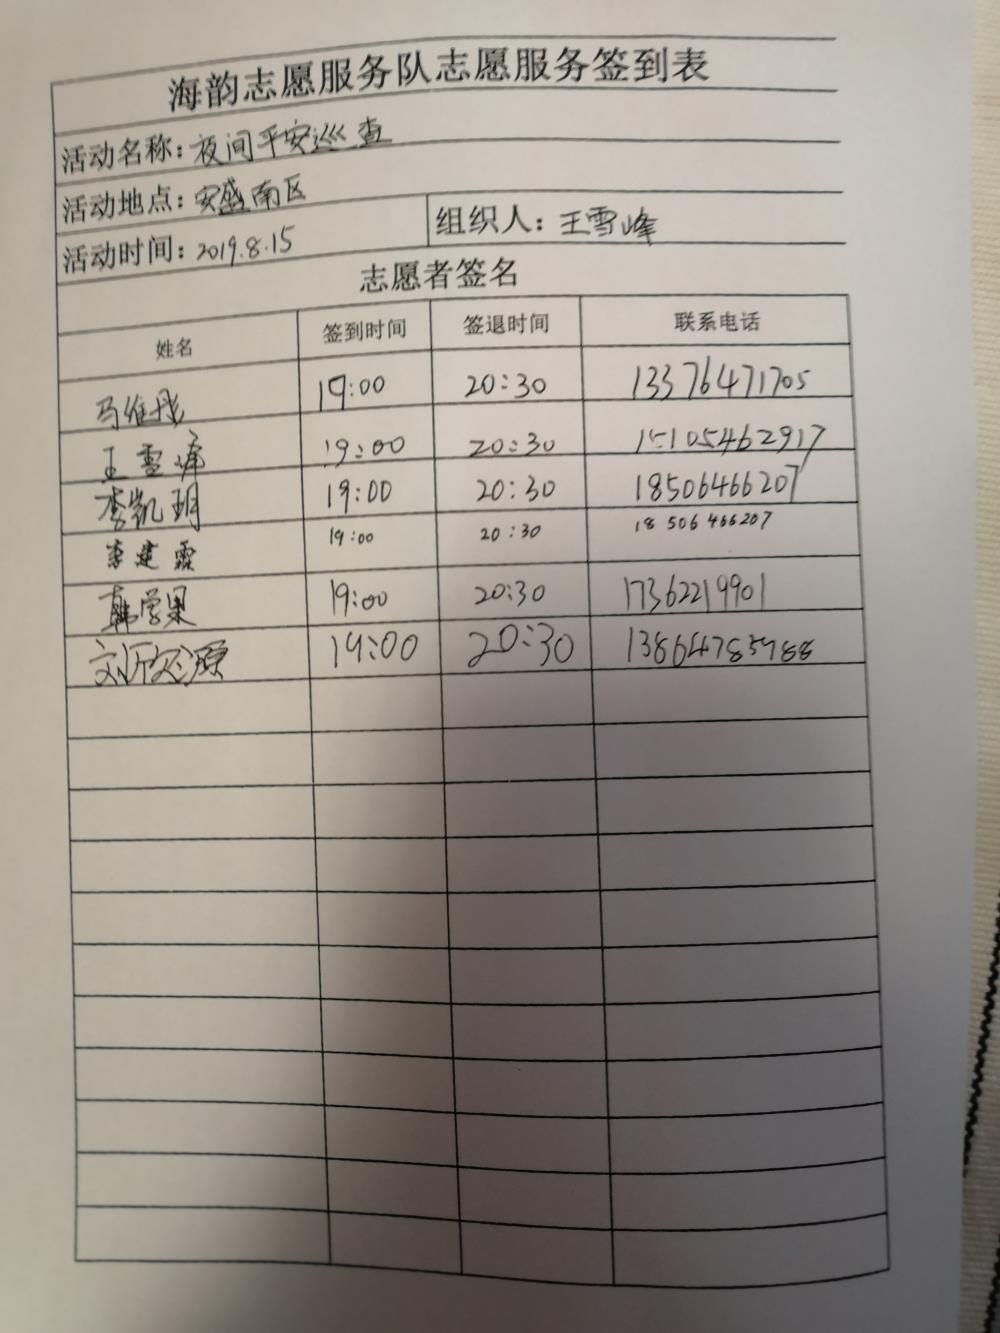 海韵志愿服务队志愿服务签到表
活动名称：夜间平安巡查
活动地点：安盛南区
活动时间：2019.8.15 组织人：王雪峰
志愿者签名
姓名 签到时间 签退时间 联系电话
马维彤 19:00 20:30 13376471705
王雪峰 19:00 20:30 15105462917
李凯玥 19:00 20:30 18506466207
李建霖 19:00 20:30 18506466207
韩学果 19:00 20:30 17362219901
19:00 20:30